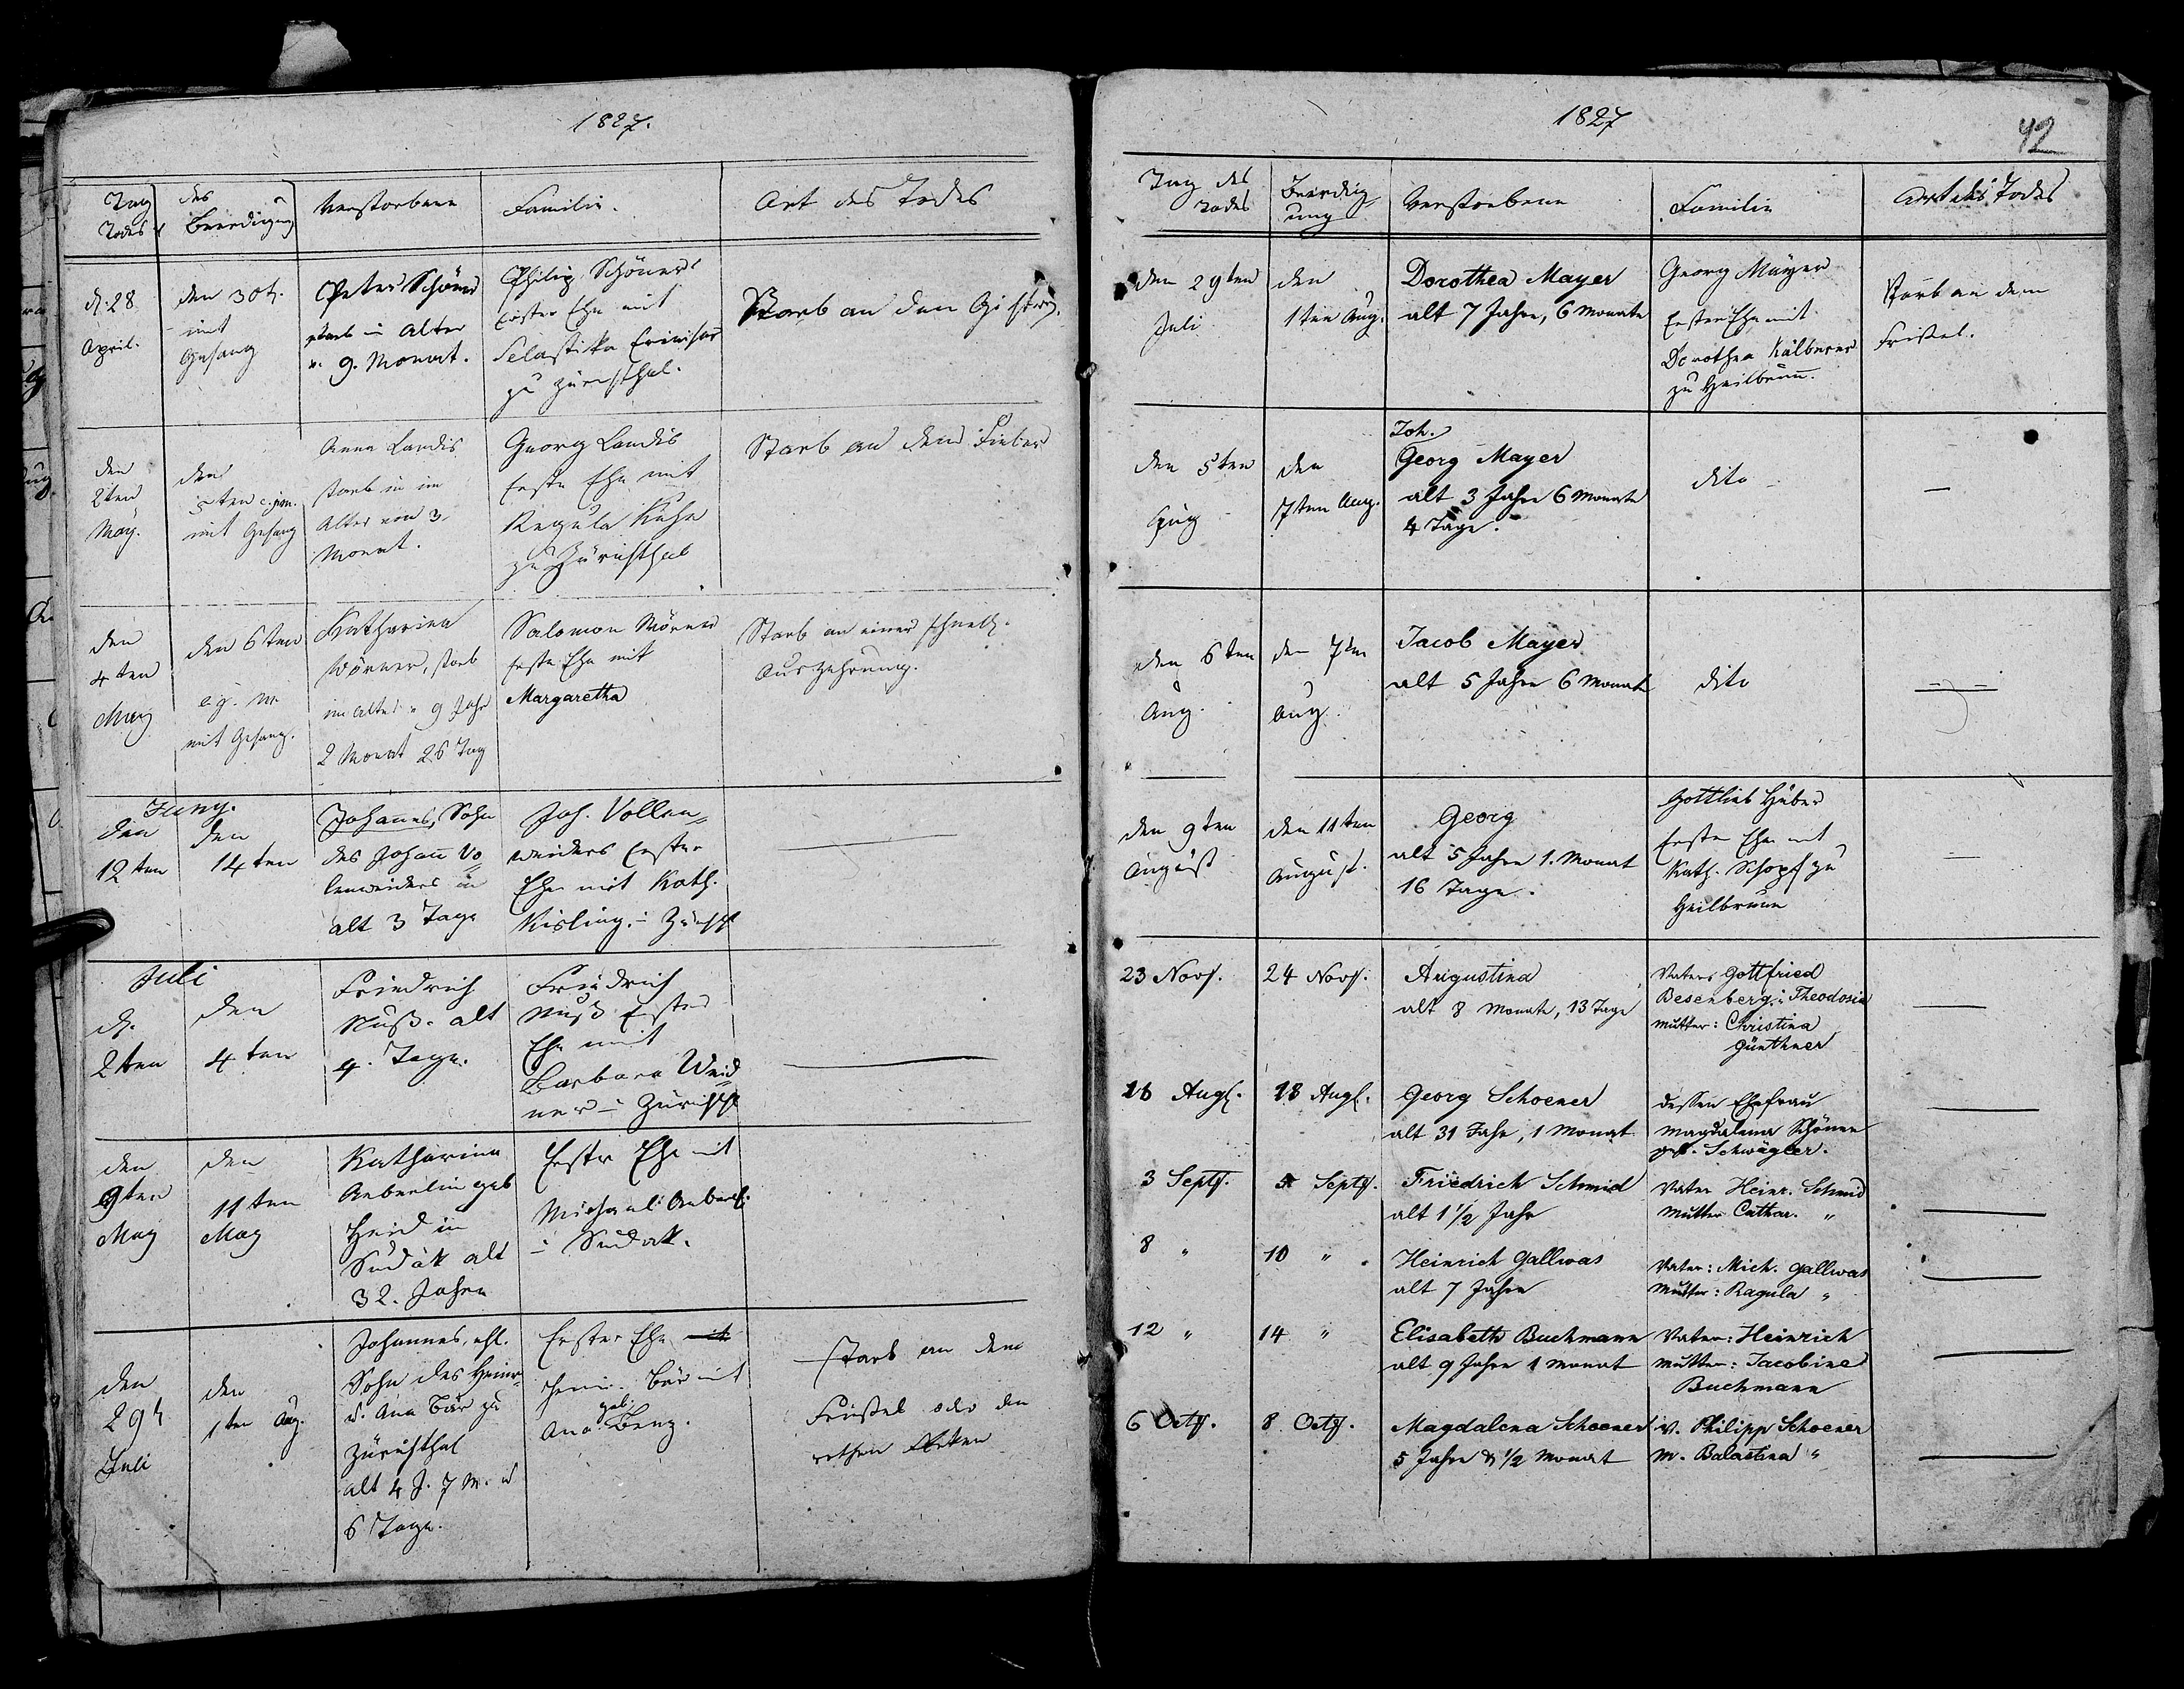 1827.
Tag des
Todes Beerdigung Verstorbene Familie. Art des Todes
d. 28
April.
den 30t.
mit
Gesang
Peter Schöner
starb in Alter
v. 9. Monat.
Philip Schöner
Erster Ehe mit
zu Zürichthal.
Starb an den Gichtern.
den
2ten
May.
den
5ten
mit Gesang
Anna Landis
starb in im
Alter von 3
Monat.
Georg Landis
Erste Ehe mit
Regula Kuhn
zu Zürichthal
Starb an dem Fieber
den
4ten
May
den 6ten
mit Gesang.
Katharina
Wörner, starb
im Alter v 9 Jahr
2 Monat 26 Tag
Salomon Wörner
Erste Ehe mit
Margaretha
Starb an einer schnell.
Auszehrung.
Juny.
den
12ten
den
14ten
Johannes, Sohn
des Johann Vo-
lenweiders in
alt 3 Tage
Joh. Vollen-
weiders Erster
Ehe mit Kath.
Kisling. i Zürch
Juli
d.
2ten
den
4ten
Friedrich
Nuß. alt
4. Tage.
Friedrich
Nuß Erster
Ehe mit
Barbara Weid
ner i Zürichth
den
9ten
May
den
11ten
May
Katharina
Aeberlin geb
Heid in
Sudak alt
32. Jahre
Erste Ehe mit
Michael Aeberli
i Sudak.
den
29t
Juli
den
1ten Aug.
Johannes, ehl.
Sohn des Heinr.
u. Ana Bär zu
Zürichthal
alt 4 J. 7 M. u
6 Tage.
Erster Ehe mit
Heinr. Bär mit
geb.
Ana Benz.
starb an dem
Frießel oder den
rothen Fleken
1827
42
Tag des
Todes Beerdig-
ung Verstorbene Familie Art des Todes
den 29ten
Juli
den
1ten Aug.
Dorothea Mayer
alt 7 Jahre, 6 Monate
Georg Mayer
Erster Ehe mit
Dorothea Kälberer
zu Heilbrunn.
starb an dem
Frießel.
den 5ten
Aug
den
7ten Aug.
Joh.
Georg Mayer
alt 3 Jahre 6 Monate
4 Tage.
dito
—
den 6ten
Aug.
den 7ten
Aug.
Jacob Mayer
alt 5 Jahre 6 Monate
dito
den 9ten
August
den 11ten
August.
Georg
alt 5 Jahre 1. Monat
16 Tage.
Gottlieb Huber
Erste Ehe mit
Kath. Schopf zu
Heilbrunn
—
23 Novb. 24 Novb.
Augustina
alt 8 Monate, 13 Tage
Vater Gottfried
Besenberg i Theodosia
Mutter: Christina
Günthner
—
16 Augt. 18 Augt.
Georg Schoener
alt 31 Jahr, 1 Monat
dessen Ehefrau
Magdalena Schöner
geb. Schwägler.
—
3 Septb. 5 Septb.
Friedrich Schmid
alt 1 1/2 Jahr
Vater Heinr. Schmid
Mutter Cathar. "
—
8 " 10 "
Heinrich Gallwas
alt 7 Jahre
Vater: Mich. Gallwas
Mutter: Ragula "
—
12 " 14 "
Elisabeth Buchmann
alt 9 Jahre 1 Monat
Vater: Heinrich
Mutter: Jacobina
Buchmann
—
6 Octb. 8 Octb.
Magdalena Schoener
5 Jahre & 1/2 Monat
V. Philipp Schoener
M. Balastina "
—